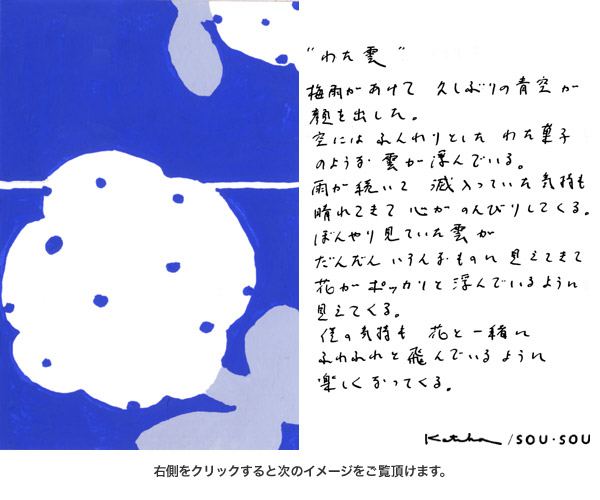 "わた雲"
梅雨があけて 久しぶりの青空が
顔を出した。
空には ふんわりとした わた菓子
のような 雲が浮んでいる。
雨が続いて 滅入っていた気持も
晴れてきて 心が のんびりしてくる。
ぼんやり見ていた雲が
だんだん いろんなものに 見えてきて
花が ポッカリと浮んでいるように
見えてくる。
僕の気持も 花と一緒に
ふわふわと 飛んでいるように
楽しくなってくる。
Katsuji /SOU・SOU
右側をクリックすると次のイメージをご覧頂けます。